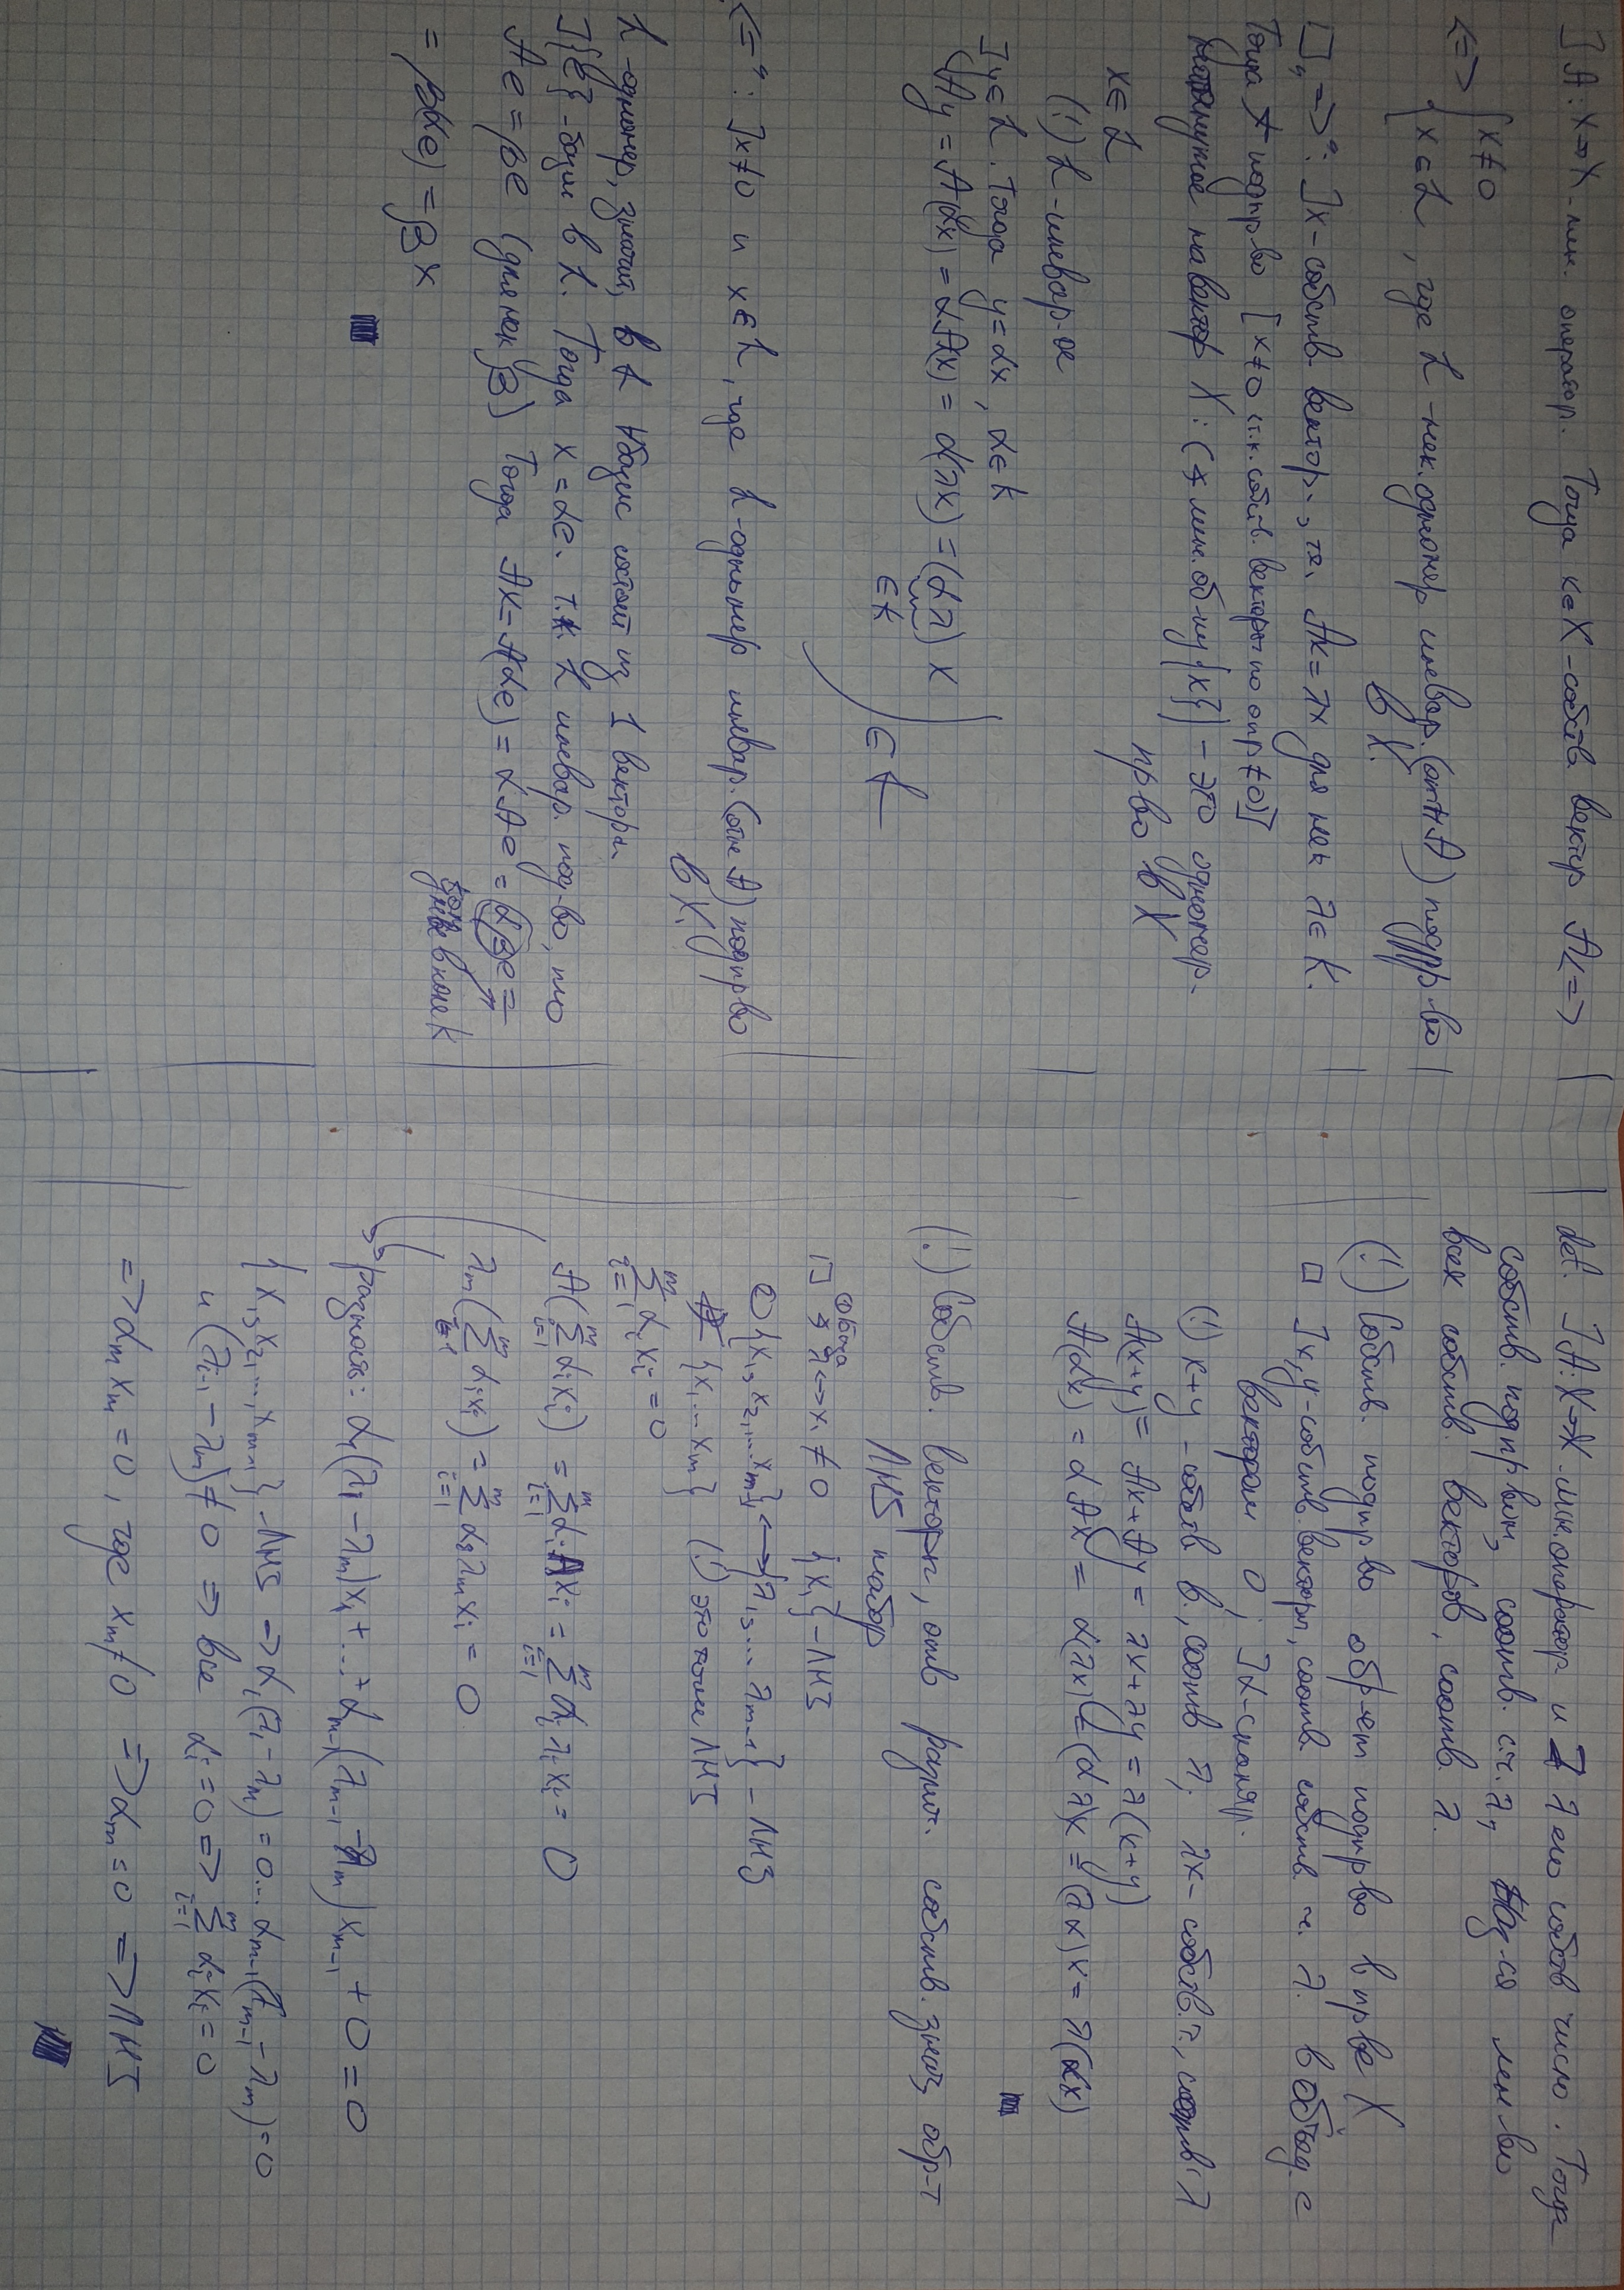 ] A: X→X - лин. оператор. Тогда x∈X - собств. вектор A <=>
<=> { x≠0
x∈L, где L - нек. одномер инвар. (отн A) подпр-во
в X.
□ „=>“: ] x - собств. вектор, т.е. Ax = λx для нек λ∈K.
Тогда подпр-во [x≠0 т.к. собств. векторы по опр ≠0]
натянутое на вектор X: (лин. об-ку {x}) - это одномер.
пр-во в X
x∈L
(!) L - инвар-е
] y∈L. Тогда y=αx, α∈K
Ay = A(αx) = αA(x) = α(λx) = (αλ) x
∈K
∈ L
„<=“: ] x≠0 и x∈L, где L - одномер инвар. (отн A) подпр-во
в X.
L - одномер, значит, в L базис состоит из 1 вектора.
] {e} - базис в L. Тогда x = αe. т.к. L инвар. под-во, то
Ae = βe (для нек β) Тогда Ax = A(αe) = αAe = αβe =
= β(αe) = βx
def. ] A: X→X лин. оператор и λ его собств число. Тогда
собств. подпр-вом, соотв. сч. λ, наз-ся мн-во
всех собств. векторов, соотв. λ.
(!) Собств. подпр-во обр-ет подпр-во в пр-ве X
□ ] x, y - собств. векторы, соотв. собств. ч. λ. в объед. с
вектором 0; ] α - скаляр.
(!) x+y - собств в., соотв λ; λx - собств. , соотв λ
A(x+y) = Ax + Ay = λx + λy = λ(x+y)
A(αx) = αAx = α(λx) = (αλ)x = (λα)x = λ(αx)
(!) Собств. векторы, отв различ. собств. знач, обр-т
ЛНЗ набор
□ ① λ <-> x₁ ≠ 0 {x₁} - ЛНЗ
② {x₁, x₂, ... xₘ₋₁} <-> {λ₁, ... λₘ₋₁} - ЛНЗ
{x₁ ... xₘ} (!) это тоже ЛНЗ
∑ᵢ₌₁ᵐ αᵢxᵢ = 0
A(∑ᵢ₌₁ᵐ αᵢxᵢ) = ∑ᵢ₌₁ᵐ αᵢAxᵢ = ∑ᵢ₌₁ᵐ αᵢλᵢxᵢ = 0
λₘ(∑ᵢ₌₁ᵐ αᵢxᵢ) = ∑ᵢ₌₁ᵐ αᵢλₘxᵢ = 0
разность: α₁(λ₁ - λₘ)x₁ + ... + αₘ₋₁(λₘ₋₁ - λₘ)xₘ₋₁ + 0 = 0
{x₁, x₂, ..., xₘ₋₁} - ЛНЗ => α₁(λ₁ - λₘ) = 0 ... αₘ₋₁(λₘ₋₁ - λₘ) = 0
и (λᵢ₋₁ - λₘ) ≠ 0 => все αᵢ = 0 => ∑ᵢ₌₁ᵐ αᵢxᵢ = 0
=> αₘxₘ = 0, где xₘ ≠ 0 => αₘ = 0 => ЛНЗ